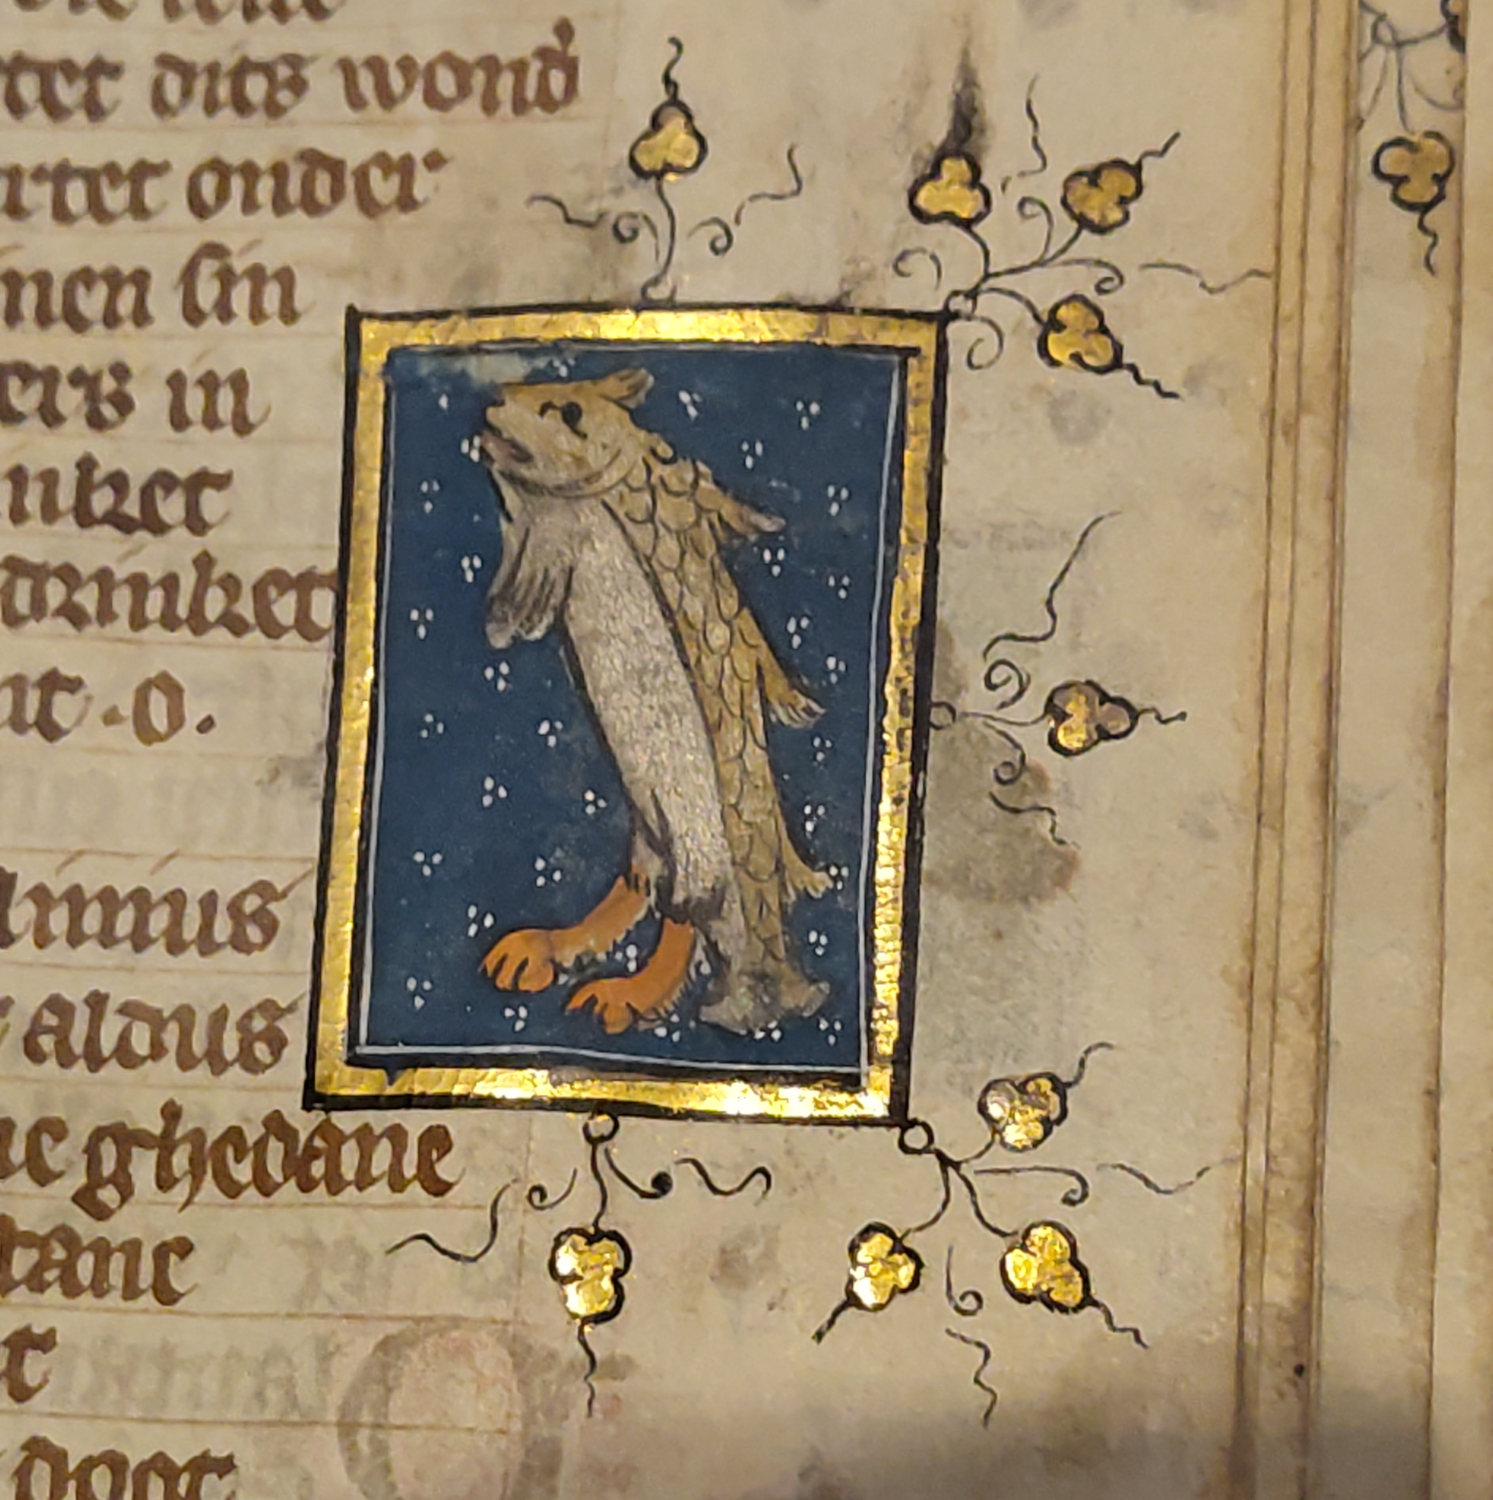 tet dits wond'
rtet onder
nen sin
ers in
nket
drinket
it .o.
nimus
aldus
ue ghedane
tane
t
doot